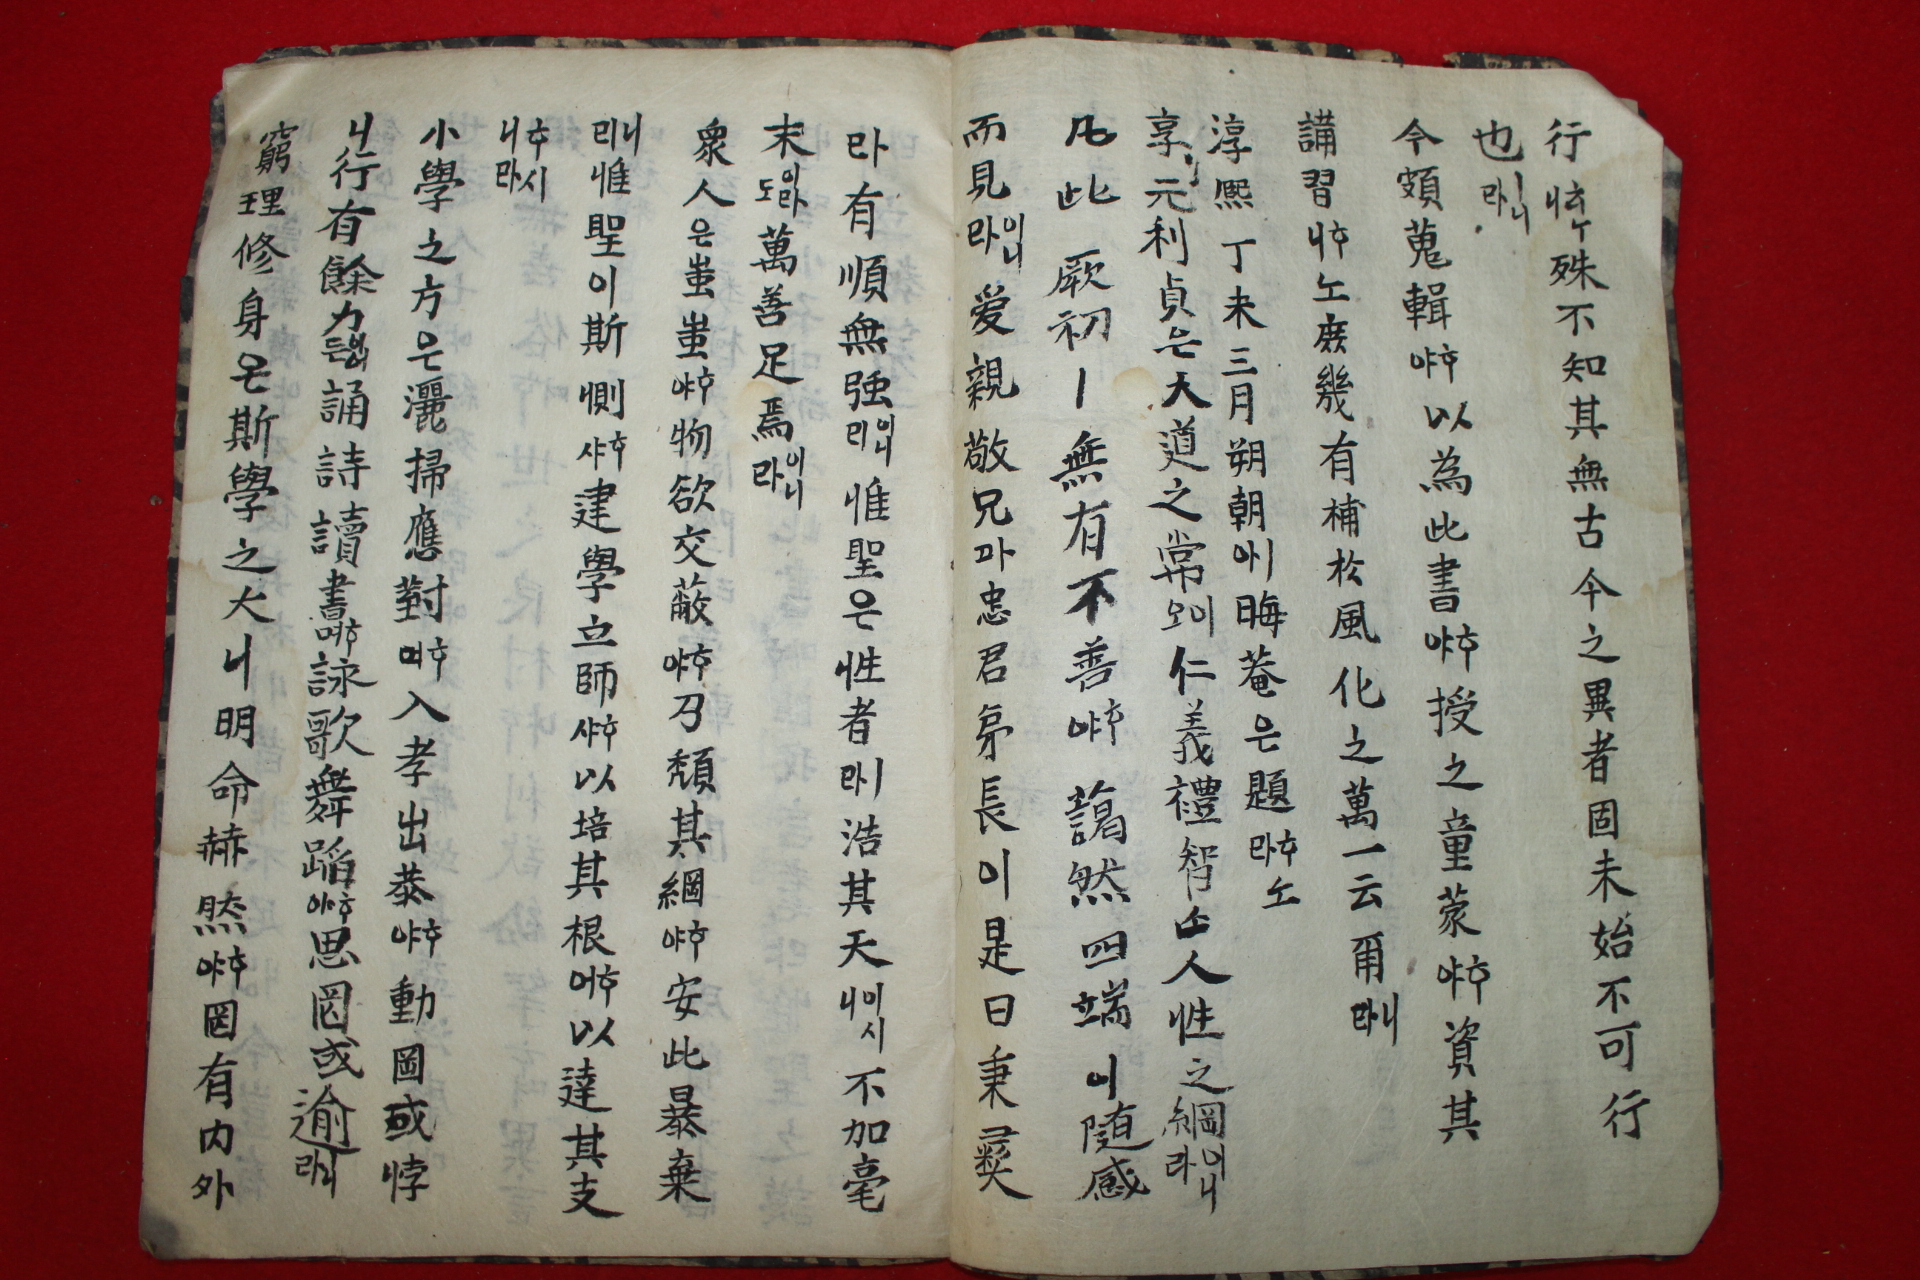 行 殊不知其無古今之異者固未始不可行
也ㅣ니라
今頗蒐輯ᄒᆞ야以為此書ᄒᆞ야授之童蒙ᄒᆞ야資其
講習ᄒᆞ노니庶幾有補於風化之萬一云爾라니
淳熙丁未三月朔朝애晦菴은題ᄒᆞ라노
享元利貞은天道之常이오仁義禮智ᄂᆞᆫ人性之綱이니라
凡此厥初ㅣ無有不善ᄒᆞ야藹然四端이隨感
而見이니라愛親敬兄과忠君弟長이是曰秉彛
라有順無强이니리惟聖은性者라ㅣ浩其天이시니不加毫
末이라도萬善足焉이니라
衆人은蚩蚩ᄒᆞ야物欲交蔽ᄒᆞ야乃頹其綱ᄒᆞ야安此暴棄
리니惟聖이斯惻ᄒᆞ샤建學立師ᄒᆞ샤以培其根ᄒᆞ여以達其支
ᄒᆞ시니라
小學之方은灑掃應對ᄒᆞ며入孝出恭ᄒᆞ야動罔或悖
니行有餘力이어든誦詩讀書ᄒᆞ며詠歌舞蹈ᄒᆞ야思罔或逾라니
窮理修身은斯學之大니明命赫然ᄒᆞ야罔有內外